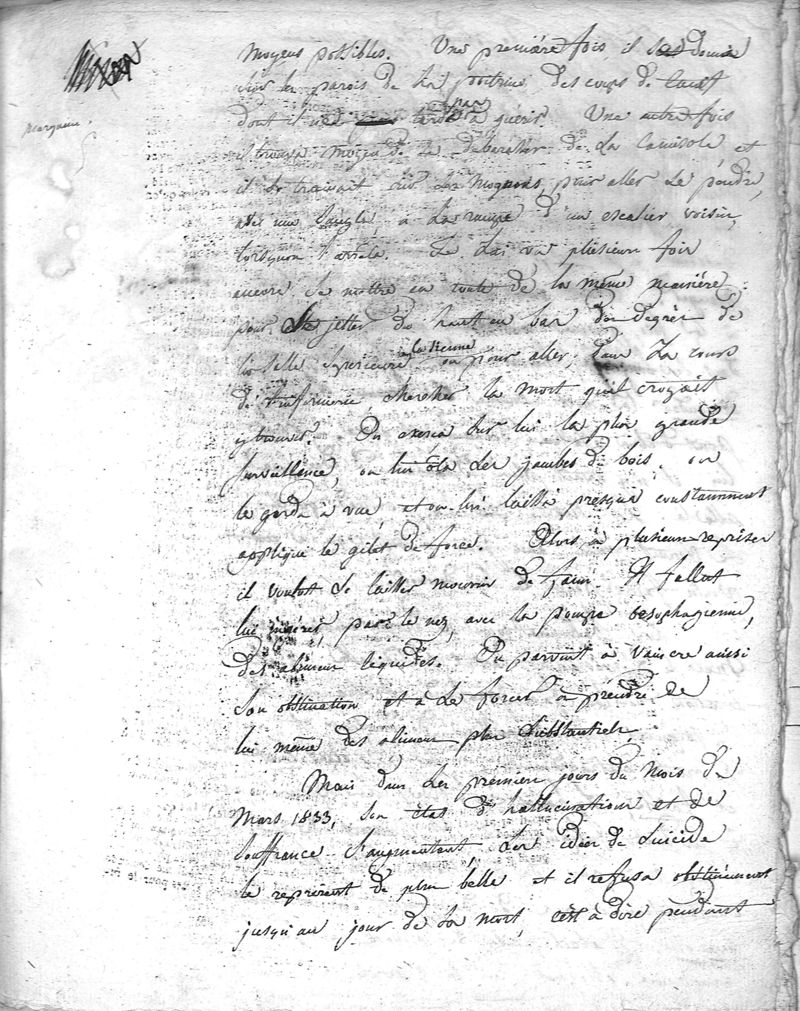 moyens possibles. Une première fois il se donna
sur les parois de la poitrine des coups de canif
dont il ne tarda pas à guérir. Une autre fois
il trouva moyen de se débarasser de la camisole et
il se trainait sur ses moignons, pour aller se pendre,
avec une sangle à la rampe d'un escalier voisin,
lorsqu'on l'arrêta. Je l'ai vu plusieurs fois
encore se mettre en route de la même manière
pour se jetter du haut en bas des degrés de
la salle supérieure à la sienne ou pour aller, dans la cour
de l'infirmerie chercher la mort qu'il croyait
y trouver. On exerça sur lui la plus grande
surveillance, on lui ôta ses jambes de bois, on
le garda à vue, et on lui laissa presque constamment
appliqué le gilet de force. Alors, à plusieurs reprises
il voulut se laisser mourir de faim. Il fallut
lui ingérer, par le nez, avec la pompe oesophagienne,
des alimens liquides. On parvint à vaincre aussi
son obstination et à le forcer à prendre de
lui même des alimens plus substantiels
Mais dans les premiers jours du mois de
Mars 1833, son état d'hallucinations et de
souffrance s'augmentant, ses idées de suicide
le reprirent de plus belle et il refusa obstinément
jusqu'au jour de sa mort, c'est à dire pendant